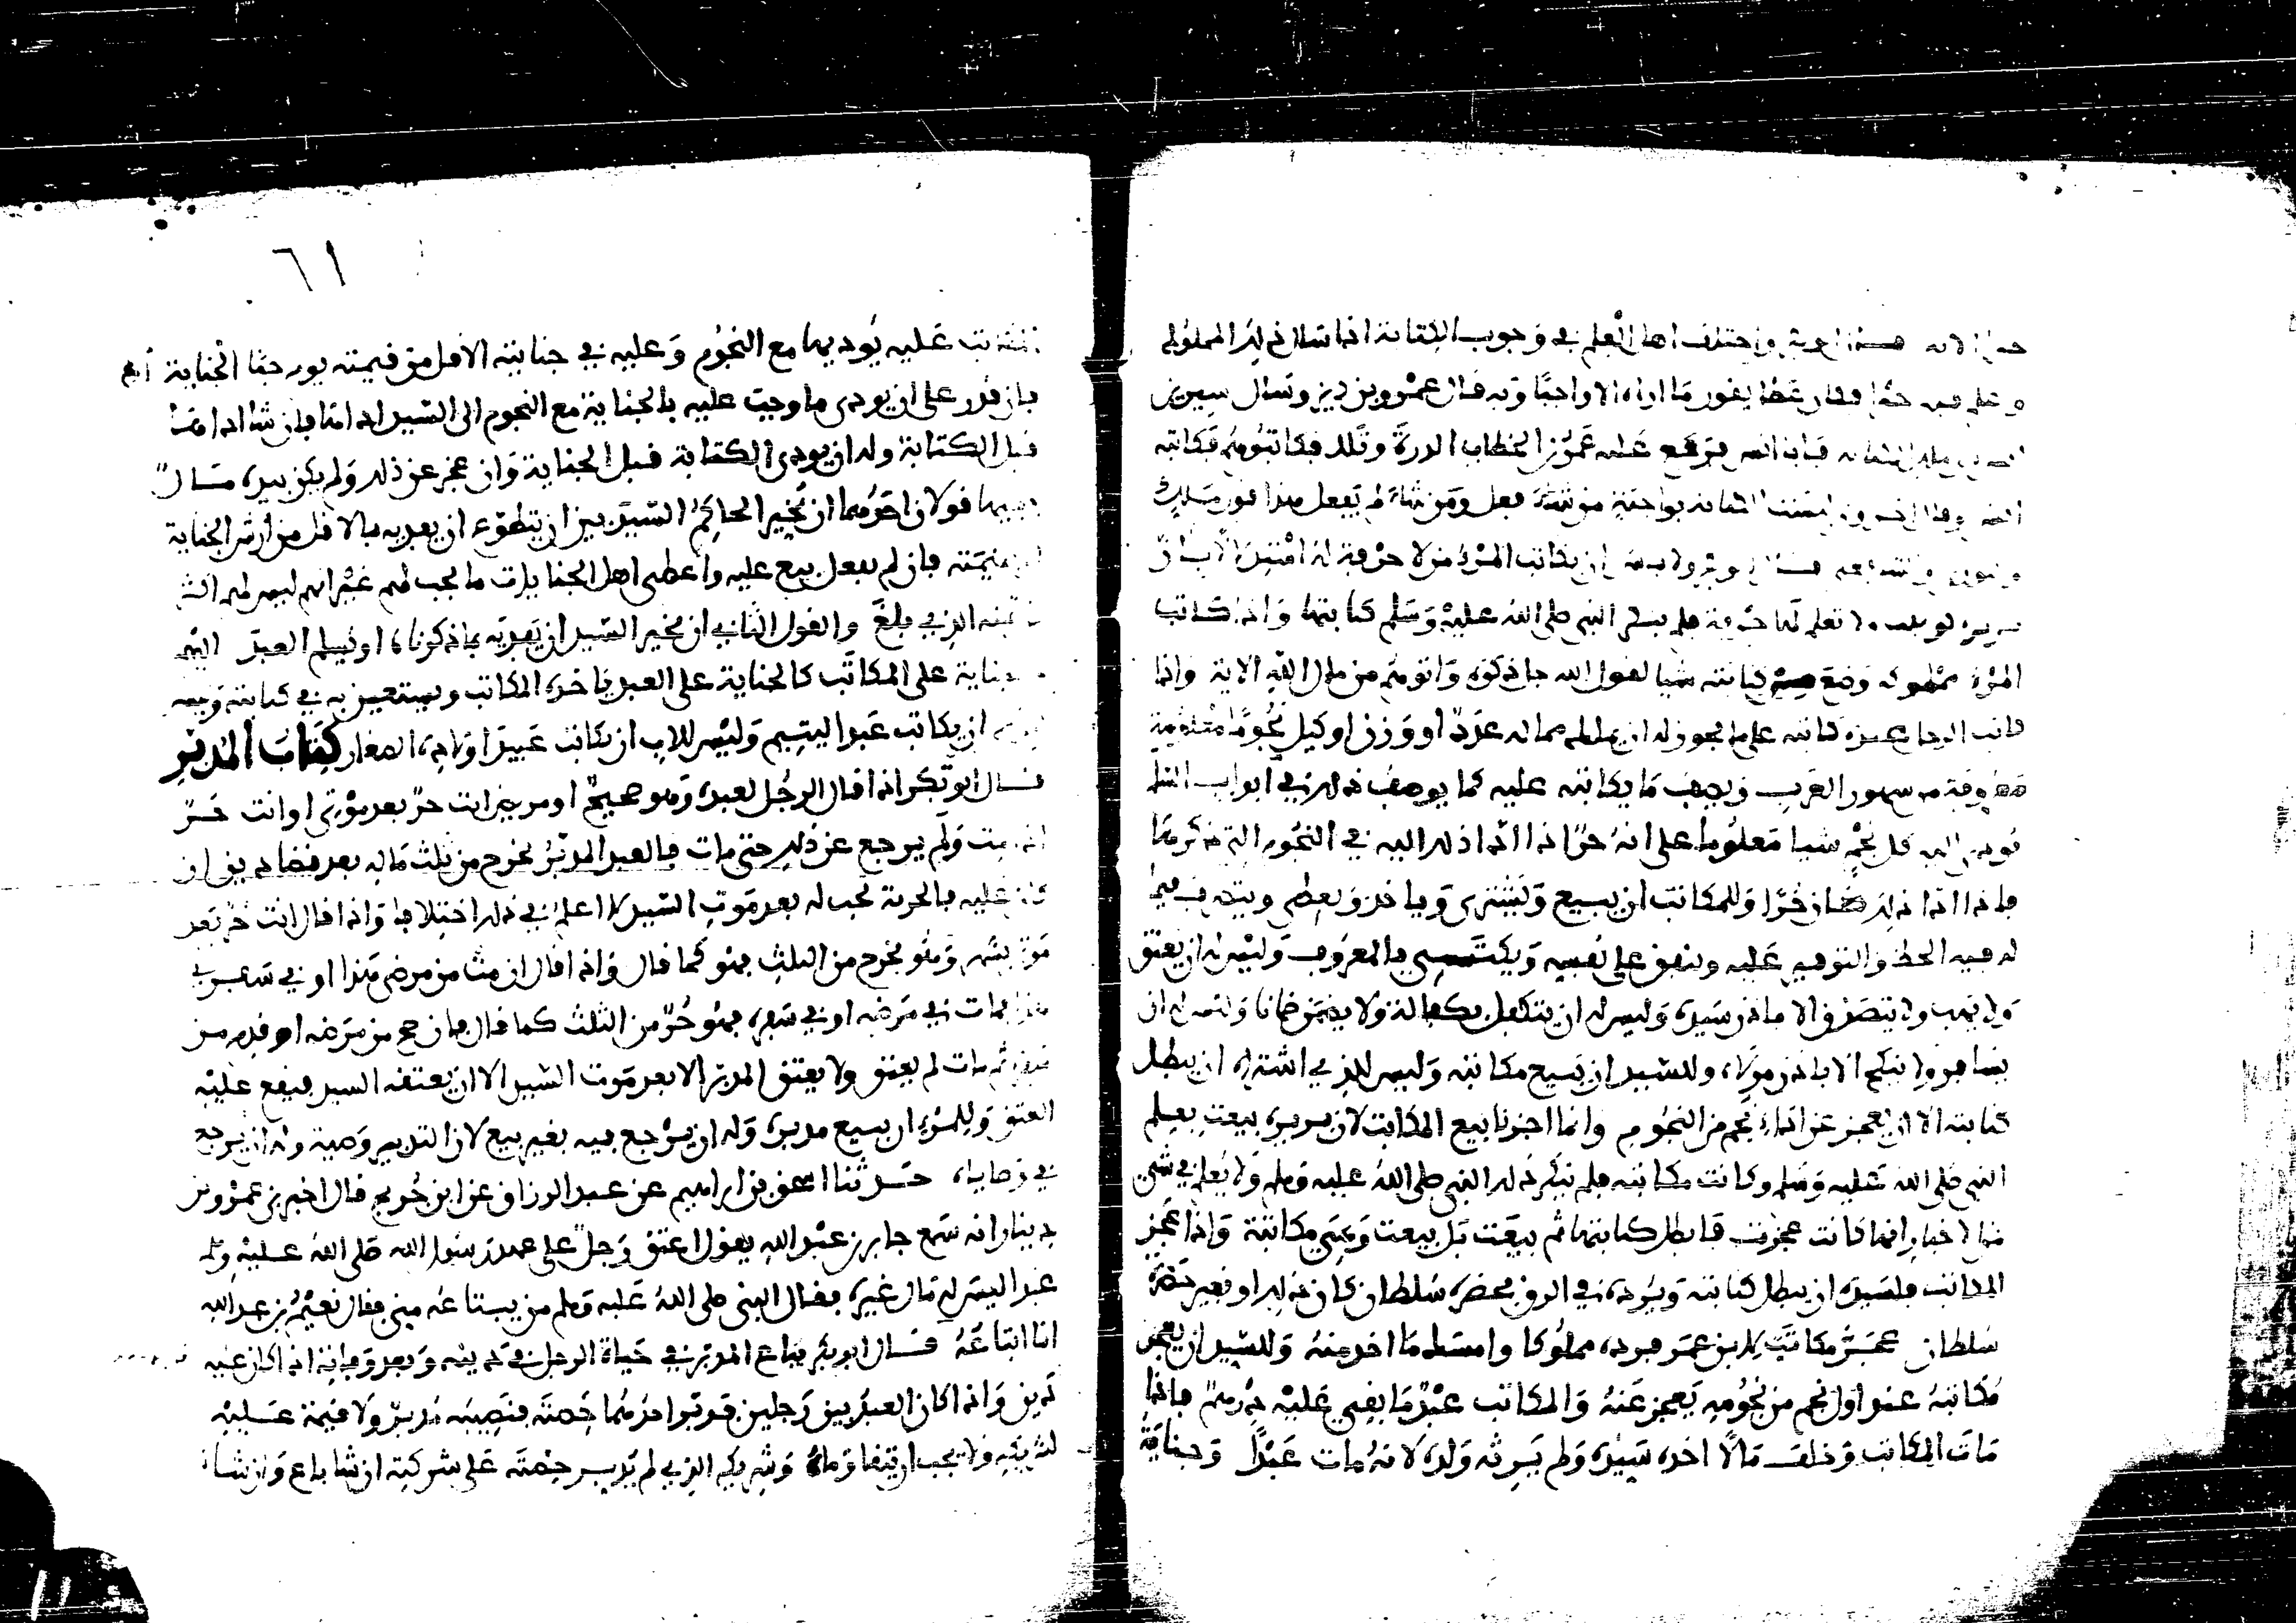 واختلف اهل العلم في وجوب الكتابة اذا سال ذلك المملوك
فقال عطا يقول ما اراه الا واجبا وبه قال عمرو بن دينر وسال سيرين
فابا انس فرفع عليه عمر بن الخطاب الدرة وتلا فكاتبوهم فكاتبه
الكتابة بواجبة من شاء فعل ومن شاء لم يفعل هذا قول ملك
ولا باس ان يكاتب المرء من لا حرفة له
تعلم لها حرفة فلم ينكر النبي صلى الله عليه وسلم كتابتها واذا كاتب
المرء مملوكه وضع عنه من كتابته شيا لقول الله جل ذكره واتوهم من مال الله الاية واذا
كاتب الرجل عبده كاتبه على ما يجوز له ان يملكه مما له عدد او وزن او كيل نجوما معلومة
معروفة من شهور العرب ويصف ما يكاتبه عليه كما يوصف ذلك في ابواب السلم
يودي اليه كل نجم شيا معلوما على انه حر اذا ادا ذلك اليه في النجوم التي ذكرها
فاذا ادا ذلك كان حرا وللمكاتب ان يبيع ويشتري وياخذ ويعطي ويتصرف فيما
له فيه الحظ والتوفير عليه وينفق على نفسه ويكتسي بالمعروف وليس له ان يعتق
ولا يهب ولا يتصدق الا باذن سيده وليس له ان يتكفل بكفالة ولا يضمن ضمانا وليس له ان
يسافر ولا ينكح الا باذن مولاه وللسيد ان يبيع مكاتبه وليس للذي اشتراه ان يبطل
كتابته الا ان يعجز عن اداء نجم من النجوم وانما اجزنا بيع المكاتب لان بريرة بيعت بعلم
النبي صلى الله عليه وسلم وكانت مكاتبة فلم ينكر ذلك النبي صلى الله عليه وسلم ولا يعلم في شي
من الاخبار انها كانت عجزت فابطل كتابتها ثم بيعت بل بيعت وهي مكاتبة واذا عجز
المكاتب فلسيده ان يبطل كتابته ويرده في الرق بحضرة سلطان كان ذلك او بغير حضرة
سلطان عجز مكاتب لابن عمر فرده مملوكا وامسك ما اخذ منه وللسيد ان يعجز
مكاتبه عند اول نجم من نجومه يعجز عنه والمكاتب عبد ما بقي عليه درهم فاذا
مات المكاتب وخلف مالا اخذه سيده ولم يرثه ولده لانه مات عبدا وجناية
٦١
المكاتب عليه يوديها مع النجوم وعليه في جنايته الاقل من قيمته يوم جنا الجناية
فان قدر على ان يودي ما وجب عليه بالجناية مع النجوم الى السيد اداها فان شا اداها
قبل الكتابة وله ان يودي الكتابة قبل الجناية وان عجز عن ذلك ولم يكن بيده مال
ففيها قولان احدهما ان يخير الحاكم السيد بين ان يتطوع ان يفديه بالاقل من ارش الجناية
او قيمته فان لم يفعل بيع عليه واعطى اهل الجنايات ما يجب لهم غير انهم ليس لهم
ثمنه الذي بلغ والقول الثاني ان يخير السيد ان يفديه بما ذكرناه او يسلم العبد اليهم
والجناية على المكاتب كالجناية على العبد ياخذه المكاتب ويستعين به في كتابته وليس
ان يكاتب عبد اليتيم وليس للاب ان يكاتب عبيد اولاده الصغار كتاب المدبر
قال ابو بكر اذا قال الرجل لعبده وهو صحيح او مريض انت حر بعد موتي او انت حر
اذا مت ولم يرجع عن ذلك حتى مات فالعبد المدبر يخرج من ثلث ماله بعد قضا دين ان
كان عليه فالحرية تجب له بعد موت السيد لا اعلم في ذلك اختلافا واذا قال انت حر بعد
موتي بشهر وهو يخرج من الثلث فهو كما قال واذا قال ان مت من مرضي هذا او في سفري
هذا فمات في مرضه او في سفره فهو حر من الثلث كما قال فان صح من مرضه او قدم من
سفره ثم مات لم يعتق ولا يعتق المدبر الا بعد موت السيد الا ان يعتقه السيد فيقع عليه
العتق وللمرء ان يبيع مدبره وله ان يرجع فيه بغير بيع لان التدبير وصية وله ان يرجع
في وصاياه حدثنا اسحق بن ابراهيم عن عبد الرزاق عن ابن جريج قال اخبرني عمرو بن
دينار انه سمع جابر بن عبد الله يقول اعتق رجل على عهد رسول الله صلى الله عليه وسلم
عبدا ليس له مال غيره فقال النبي صلى الله عليه وسلم من يبتاعه مني فقال نعيم بن عبد الله
انا ابتاعه قال ابو بكر يباع المدبر في حياة الرجل في دينه وبعد وفاته اذا كان عليه
دين واذا كان العبد بين رجلين فدبر احدهما حصته فنصيبه مدبر ولا قيمة عليه
لشريكه ولا يجب ان يتقاوماه وشريكه الذي لم يدبر حصته على شركته ان شا باع وان شا